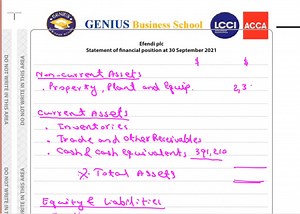 GENIUS Business School
LCCI
ACCA
Efendi plc
Statement of financial position at 30 September 2021
$ $
Non-current Assets
. Property, Plant and Equip. 2,3
Current Assets
. Inventories
. Trade and other Receivables
. Cash & cash equivalents 391,210
Total Assets
Equity & Liabilities
DO NOT WRITE IN THIS AREA
DO NOT WRITE IN THIS AREA
DO NOT WRITE IN THIS AREA
DO NOT WRITE IN THIS AREA